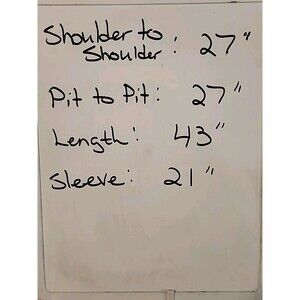 Shoulder to
Shoulder: 27"
Pit to Pit: 27"
Length: 43"
Sleeve: 21"